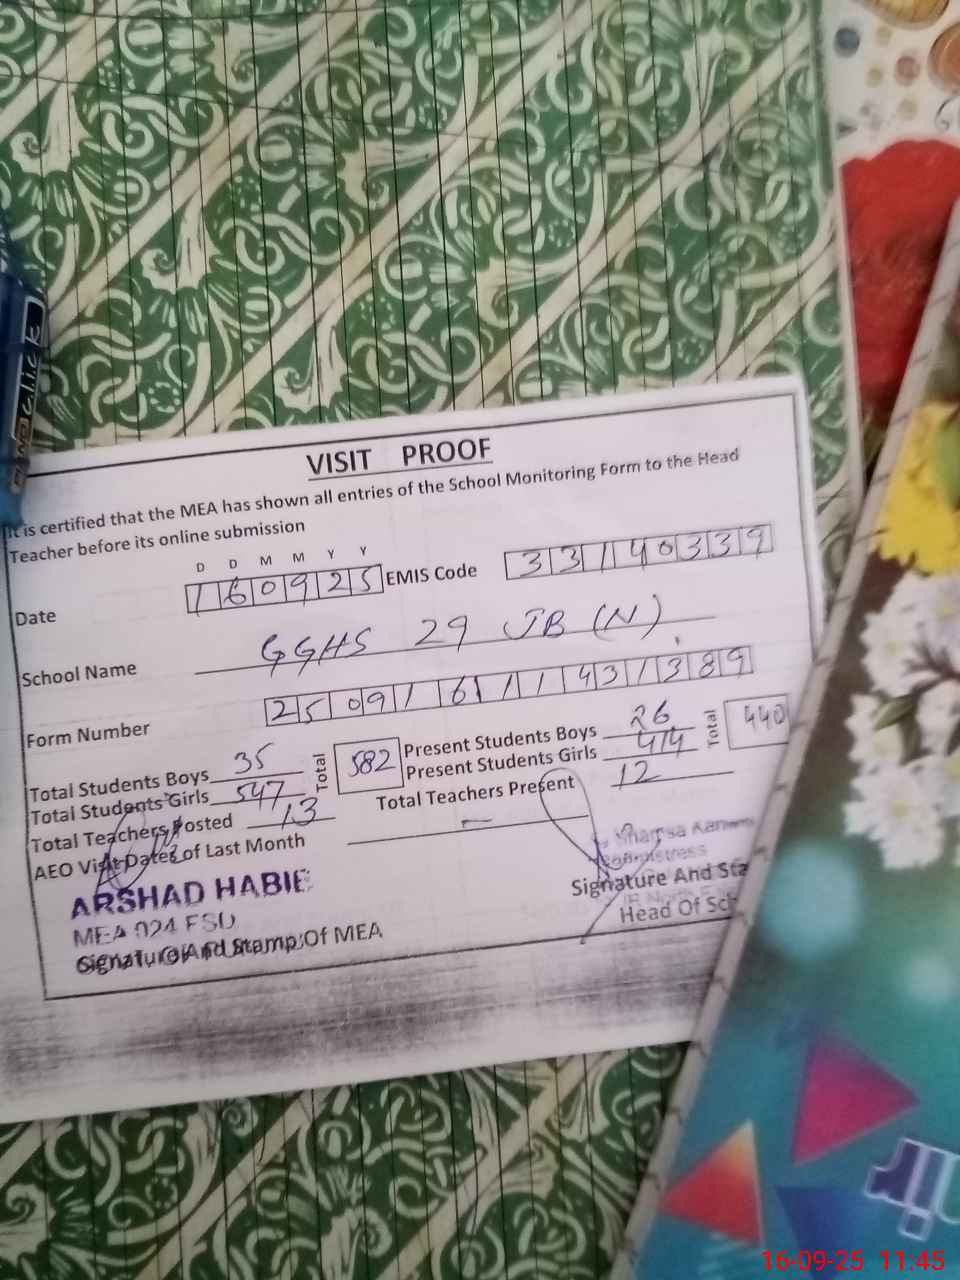 click
VISIT PROOF
It is certified that the MEA has shown all entries of the School Monitoring Form to the Head
Teacher before its online submission
D D M M Y Y
Date 160925 EMIS Code 33140339
School Name GGHS 29 JB (N)
Form Number 25091611431389
Total Students Boys 35 Total 582 Present Students Boys 26 Total 440
Total Students Girls 547 Present Students Girls 414
Total Teachers Posted 13 Total Teachers Present 12
AEO Visit Dates of Last Month –
ARSHAD HABIB
MEA 024 FSD
Signature And Stamp Of MEA
Shamsa
Signature And Sta
Head Of Sch
16-09-25 11:45